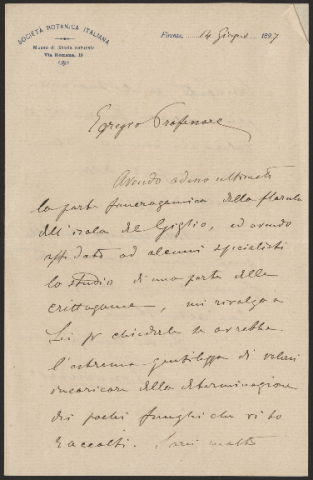 SOCIETÀ BOTANICA ITALIANA
Museo di Storia naturale
Via Romana, 19
Firenze, 14 Giugno 1897
Egregio Professore
Avendo adesso ultimato
la parte fanerogamica della florula
dell'isola del Giglio, ed avendo
affidato ad alcuni specialisti
lo studio di una parte delle
crittogame, mi rivolgo a
Lei pr chiederle se avrebbe
l'estrema gentilezza di volersi
incaricare della determinazione
dei pochi funghi che vi ho
raccolti. Sarei molto